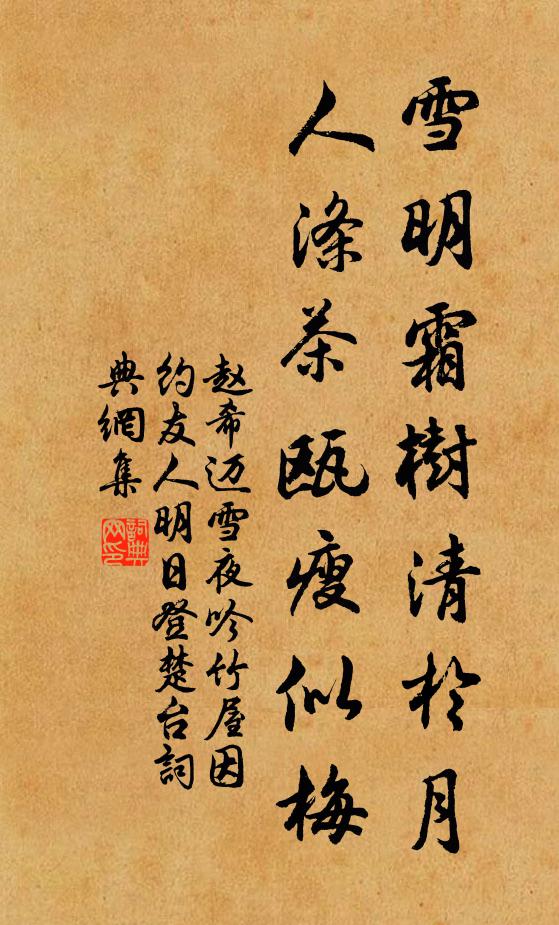 雪明霜樹清於月
人滌茶瓯瘦似梅
赵希迈雪夜吟竹屋因
约友人明日登楚台詞
典網集
詞典
网印